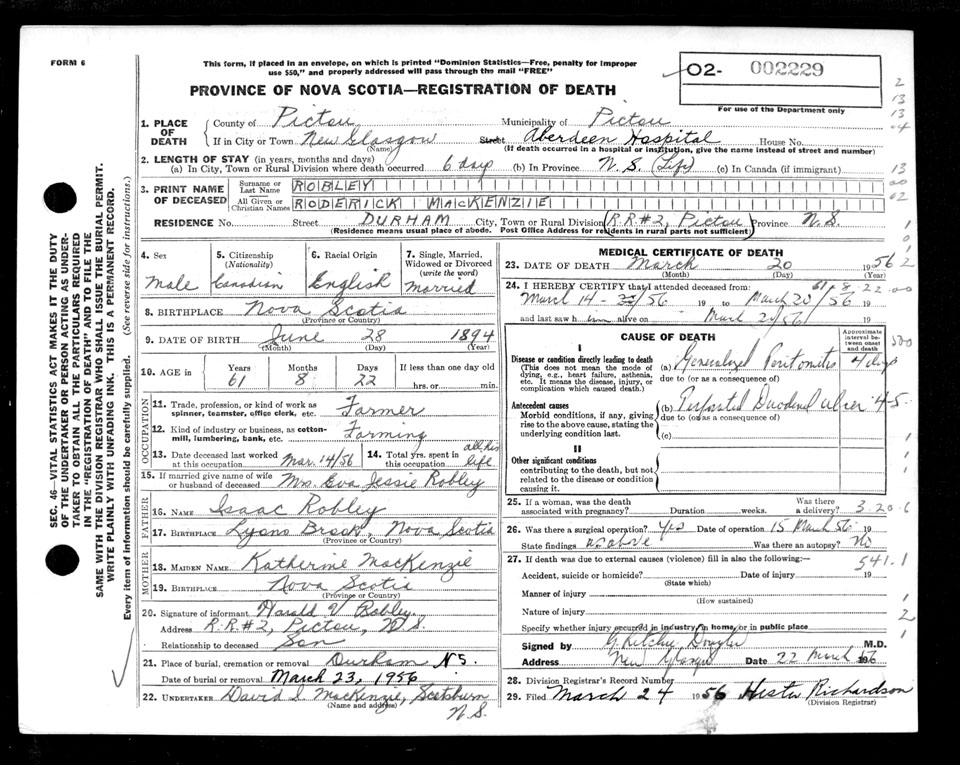 FORM 6
This form, if placed in an envelope, on which is printed "Dominion Statistics—Free, penalty for improper
use $50," and properly addressed will pass through the mail "FREE"
PROVINCE OF NOVA SCOTIA—REGISTRATION OF DEATH
02- 002229
For use of the Department only
1. PLACE OF DEATH
County of Pictou Municipality of Pictou
If in City or Town New Glasgow (Name) Street Aberdeen Hospital House No.
(If death occurred in a hospital or institution, give the name instead of street and number)
2. LENGTH OF STAY (in years, months and days)
(a) In City, Town or Rural Division where death occurred 6 days (b) In Province N.S. (Life) (c) In Canada (if immigrant)
3. PRINT NAME OF DECEASED
Surname or Last Name ROBLEY
All Given or Christian Names RODERICK MACKENZIE
RESIDENCE No. Street DURHAM City, Town or Rural Division (R.R.#2, Pictou) Province N.S.
(Residence means usual place of abode. Post Office Address for residents in rural parts not sufficient)
SEC. 46—VITAL STATISTICS ACT MAKES IT THE DUTY
OF THE UNDERTAKER OR PERSON ACTING AS UNDER-
TAKER TO OBTAIN ALL THE PARTICULARS REQUIRED
IN THE "REGISTRATION OF DEATH" AND TO FILE THE
SAME WITH THE DIVISION REGISTRAR WHO SHALL ISSUE THE BURIAL PERMIT.
WRITE PLAINLY WITH UNFADING INK. THIS IS A PERMANENT RECORD.
Every item of information should be carefully supplied. (See reverse side for instructions.)
4. Sex Male
5. Citizenship (Nationality) Canadian
6. Racial Origin English
7. Single, Married, Widowed or Divorced (write the word) Married
8. BIRTHPLACE Nova Scotia
(Province or Country)
9. DATE OF BIRTH June 28 1894
(Month) (Day) (Year)
10. AGE in Years 61 Months 8 Days 22 If less than one day old hrs. or min.
OCCUPATION
11. Trade, profession, or kind of work as spinner, teamster, office clerk, etc. Farmer
12. Kind of industry or business, as cotton-mill, lumbering, bank, etc. Farming
13. Date deceased last worked at this occupation Mar. '4/56
14. Total yrs. spent in this occupation all his life
15. If married give name of wife or husband of deceased Mrs. Eva Jessie Robley
FATHER
16. NAME Isaac Robley
17. BIRTHPLACE Lyons Brook, Nova Scotia
(Province or Country)
MOTHER
18. MAIDEN NAME Katherine MacKenzie
19. BIRTHPLACE Nova Scotia
(Province or Country)
20. Signature of informant Harold V Robley
Address R.R.#2, Pictou, N.S.
Relationship to deceased Son
21. Place of burial, cremation or removal Durham N.S.
Date of burial or removal March 23, 1956
22. UNDERTAKER David I. MacKenzie, Scotsburn
(Name and address) N.S.
MEDICAL CERTIFICATE OF DEATH
23. DATE OF DEATH March 20 1956
(Month) (Day)
61-8-22-00
24. I HEREBY CERTIFY that I attended deceased from:
March 14 /56 19 to March 20/56 19
and last saw him alive on March 20/56 19
CAUSE OF DEATH
Approximate interval between onset and death
I
Disease or condition directly leading to death
(This does not mean the mode of dying, e.g., heart failure, asthenia, etc. It means the disease, injury, or complication which caused death.)
(a) Generalized Peritonitis 4 days
due to (or as a consequence of)
Antecedent causes
Morbid conditions, if any, giving rise to the above cause, stating the underlying condition last.
(b) Perforated Duodenal ulcer 45
due to (or as a consequence of)
(c)
II
Other significant conditions
contributing to the death, but not related to the disease or condition causing it.
25. If a woman, was the death associated with pregnancy? Duration weeks. Was there a delivery? 3 20 6
26. Was there a surgical operation? Yes Date of operation 15 March 56 19
State findings as above Was there an autopsy? No
27. If death was due to external causes (violence) fill in also the following:—
541.1
Accident, suicide or homicide? Date of injury 19
(State which)
Manner of injury
(How sustained)
Nature of injury
Specify whether injury occurred in industry, in home, or in public place
Signed by M.D.
Address New Glasgow Date 22 March 1956
28. Division Registrar's Record Number
29. Filed March 24 1956 Hester Richardson
(Division Registrar)